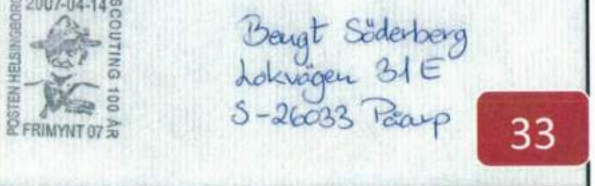 2007-04-14
POSTEN HELSINGBORG
SCOUTING 100 ÅR
FRIMYNT 07
Bengt Söderberg
Lokvägen 31 E
S-26033 Påarp
33